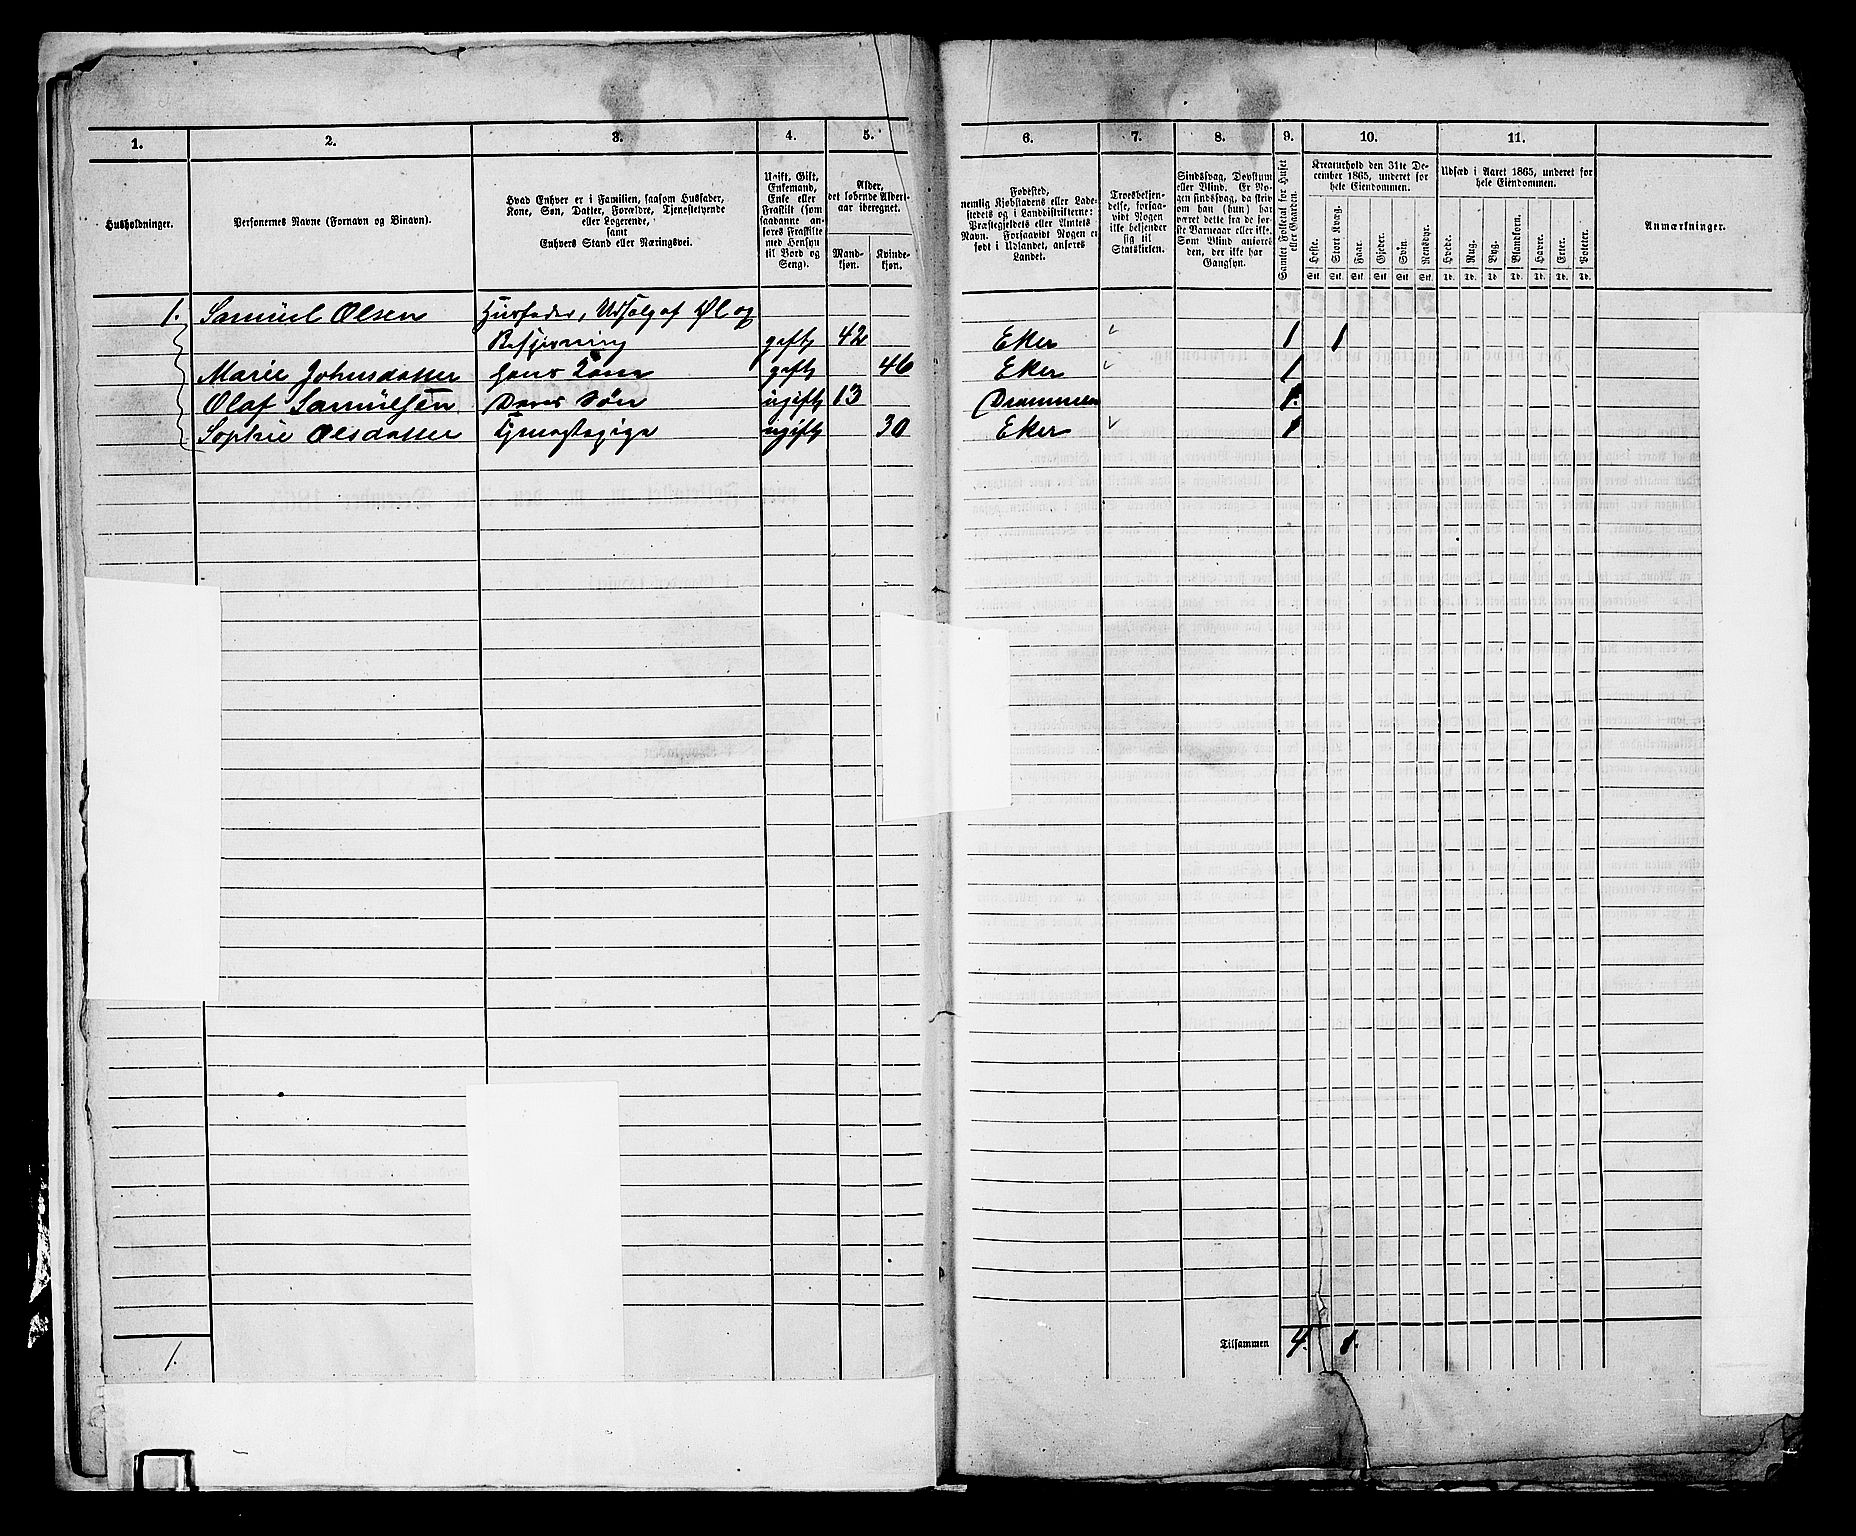 1.
2.
3.
4.
5.
6.
7.
8.
9.
10.
11.
Husholdninger.
Personernes Navne (Fornavn og Binavn).
Hvad Enhver er i Familien, saasom Husfader,
Kone, Søn, Datter, Forældre, Tjenestetyende
eller Logerende,
samt
Enhvers Stand eller Næringsvei.
Ugift, Gift,
Enkemand,
Enke eller
Fraskilt (som
saadanne an-
føres Fraskilte
med Hensyn
til Bord og
Seng).
Alder,
det løbende Alders-
aar iberegnet.
Mand-
kjøn.
Kvinde-
kjøn.
Fødested,
nemlig Kjøbstadens eller Lade-
stedets og i Landdistrikterne:
Præstegjeldets eller Amtets
Navn. Forsaavidt Nogen er
født i Udlandet, anføres
Landet.
Troesbekjen-
delse, forsaa-
vidt Nogen
ikke bekjender
sig til
Statskirken.
Sindssvag, Døvstum
eller Blind. Er No-
gen sindssvag, da skriv
om han (hun) har
været dette fra de før-
ste Barneaar eller ikke.
Som Blind anføres
den, der ikke har
Gangsyn.
Samlet Folketal for Huset
eller Gaarden.
Kreaturhold den 31te De-
cember 1865, underet for
hele Eiendommen.
Heste.
Stort Kvæg.
Faar.
Gjeder.
Svin.
Rensdyr.
Stk. Stk. Stk. Stk. Stk. Stk.
Udsæd i Aaret 1865, underet for
hele Eiendommen.
Hvede.
Rug.
Byg.
Blandkorn.
Havre.
Erter.
Poteter.
Td. Td. Td. Td. Td. Td. Td.
Anmærkninger.
1. Samüel Olsen Husfader, Udsalg af Øl og
gift 42 Eker 1 1
Marie Johnsdatter hans Kone gift 46 Eker 1
Olaf Samüelsen Deres Søn ugift 13 Drammen 1.
Sophie Olsdatter Tjenestepige ugift 30 Eker 1
Tilsammen 4. 1.
1.